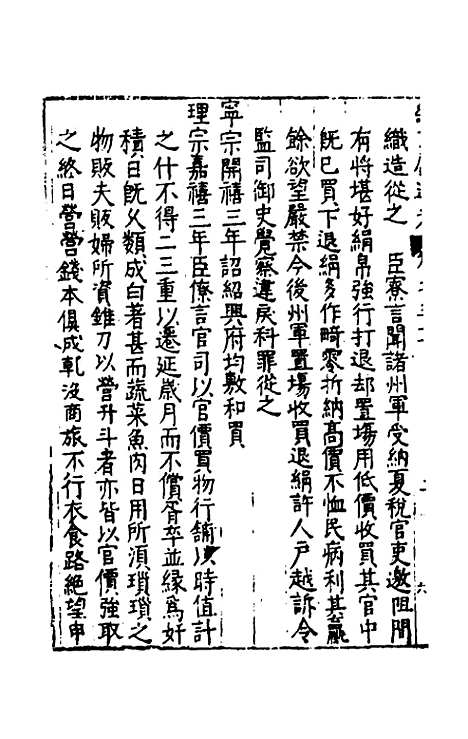 織造從之　臣寮言聞諸州軍受納夏稅官吏邀阻間
有將堪好絹帛強行打退却置場用低價收買其官中
旣已買下退絹多作畸零折納高價不恤民病利其贏
餘欲望嚴禁今後州軍置場收買退絹許人戶越訴令
監司御史覺察違戾科罪從之
寧宗開禧三年詔紹興府均敷和買
理宗嘉禧三年臣僚言官司以官價買物行鋪以時值計
之什不得二三重以遷延歲月而不償胥卒並緣爲奸
積日旣久類成白著甚而蔬菜魚肉日用所須瑣瑣之
物販夫販婦所資錐刀以營升斗者亦皆以官價強取
之終日營營錢本俱成乾沒商旅不行衣食路絶望申